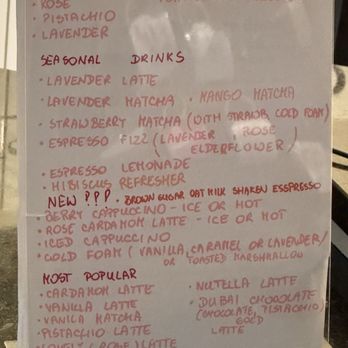 • ROSE
• PISTACHIO
• LAVENDER
SEASONAL DRINKS
• LAVENDER LATTE
• LAVENDER MATCHA • MANGO MATCHA
• STRAWBERRY MATCHA (WITH STRAWB. COLD FOAM)
• ESPRESSO FIZZ (LAVENDER, ROSE
ELDERFLOWER)
• ESPRESSO LEMONADE
• HIBISCUS REFRESHER
NEW ??? • BROWN SUGAR OAT MILK SHAKEN ESSPRESSO
• BERRY CAPPUCCINO - ICE OR HOT
• ROSE CARDAMOM LATTE - ICE OR HOT
• ICED CAPPUCCINO
• COLD FOAM (VANILLA, CARAMEL OR LAVENDER/
OR TOASTED MARSHMALLOW
MOST POPULAR
• CARDAMOM LATTE • NUTELLA LATTE
• VANILLA LATTE • DUBAI CHOCOLATE
• VANILA MATCHA (CHOCOLATE, PISTACHIO)
• PISTACHIO LATTE GOLD
LATTE
• LOVELY (ROSE) LATTE